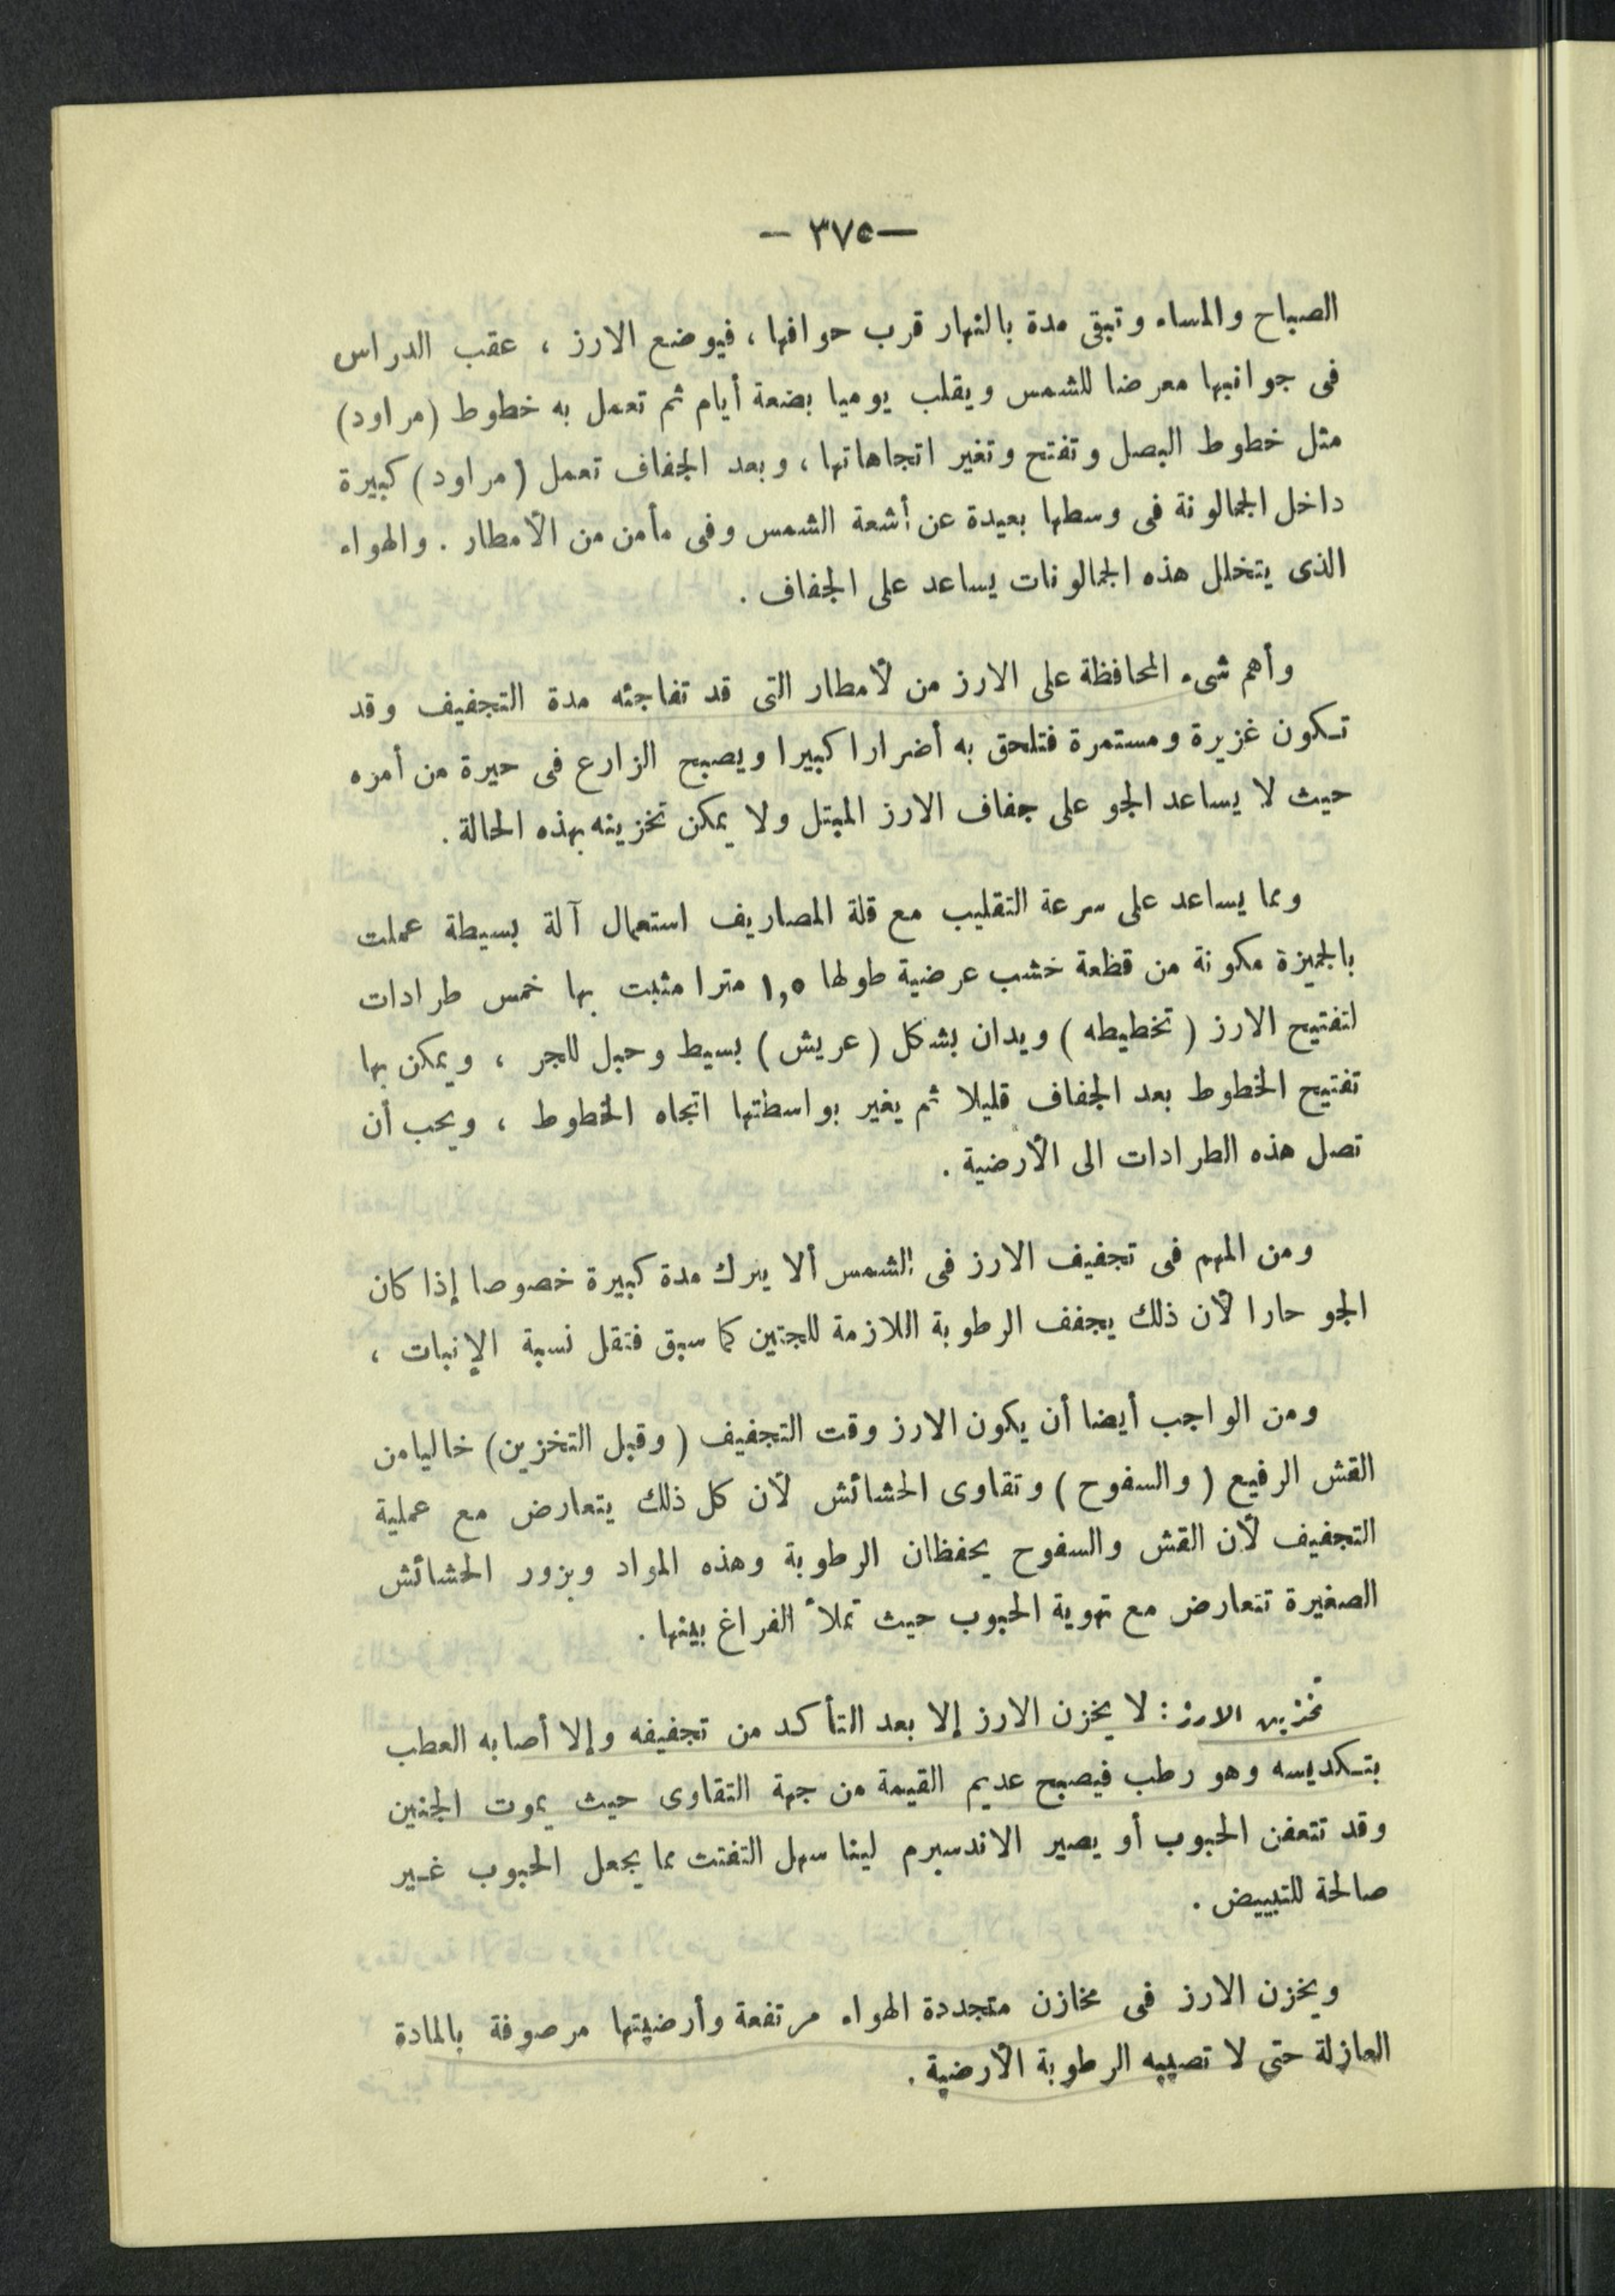 —٣٧٥ —
الصباح والمساء وتبقى مدة بالنهار قرب حوافها ، فيوضع الارز ، عقب الدراس
فى جوانبها معرضا للشمس ويقلب يوميا بضعة أيام ثم تعمل به خطوط (مراود)
مثل خطوط البصل وتفتح وتغير اتجاهاتها ، وبعد الجفاف تعمل (مراود) كبيرة
داخل الجمالونة فى وسطها بعيدة عن أشعة الشمس وفى مأمن من الأمطار . والهواء
الذى يتخلل هذه الجمالونات يساعد على الجفاف .
وأهم شىء المحافظة على الارز من لأمطار التى قد تفاجئه مدة التجفيف وقد
تكون غزيرة ومستمرة فتلحق به أضرارا كبيرا ويصبح الزارع فى حيرة من أمره
حيث لا يساعد الجو على جفاف الارز المبتل ولا يمكن تخزينه بهذه الحالة .
ومما يساعد على سرعة التقليب مع قلة المصاريف استعمال آلة بسيطة عملت
بالجيزة مكونة من قظعة خشب عرضية طولها ١,٥ مترا مثبت بها خمس طرادات
لتفتيح الارز ( تخطيطه ) ويدان بشكل ( عريش ) بسيط وحبل للجر ، ويمكن بها
تفتيح الخطوط بعد الجفاف قليلا ثم يغير بواسطتها اتجاه الخطوط ، ويحب أن
تصل هذه الطرادات الى الأرضية .
ومن المهم فى تجفيف الارز فى الشمس ألا يترك مدة كبيرة خصوصا إذا كان
الجو حارا لأن ذلك يجفف الرطوبة اللازمة للجنين كما سبق فتقل نسبة الإنبات ،
ومن الواجب أيضا أن يكون الارز وقت التجفيف ( وقبل التخزين ) خاليا من
القش الرفيع ( والسفوح ) وتقاوى الحشائش لأن كل ذلك يتعارض مع عملية
التجفيف لأن القش والسفوح يحفظان الرطوبة وهذه المواد وبزور الحشائش
الصغيرة تتعارض مع تهوية الحبوب حيث تملأ الفراغ بينها .
تخزين الارز : لا يخزن الارز إلا بعد التأكد من تجفيفه وإلا أصابه العطب
بتكديسه وهو رطب فيصبح عديم القيمة من جهة التقاوى حيث يموت الجنين
وقد تتعفن الحبوب أو يصير الاندسبرم لينا سهل التفتت مما يجعل الحبوب غير
صالحة للتبييض .
ويخزن الارز فى مخازن متجددة الهواء مرتفعة وأرضيتها مرصوفة بالمادة
العازلة حتى لا تصيبه الرطوبة الأرضية .